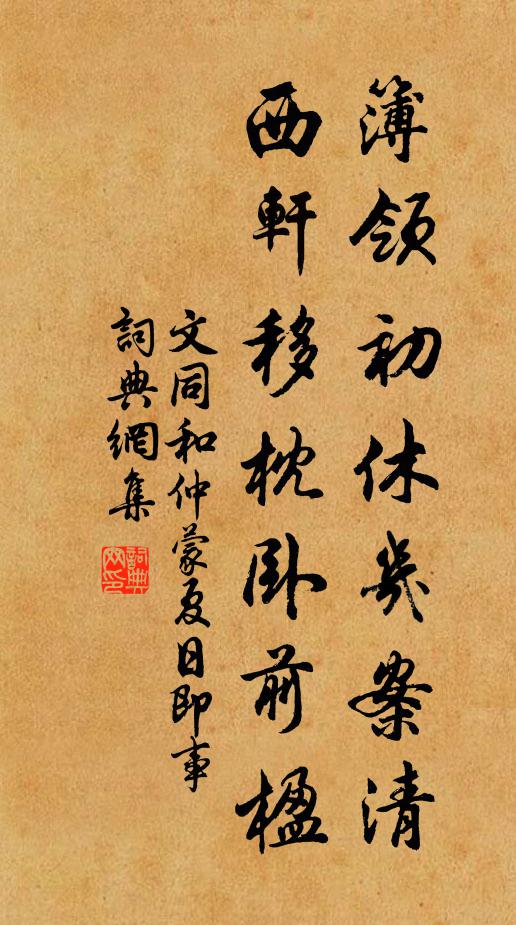 簿領初休几案清
西軒移枕臥前楹
文同和仲蒙夏日即事
詞典網集
詞典網印